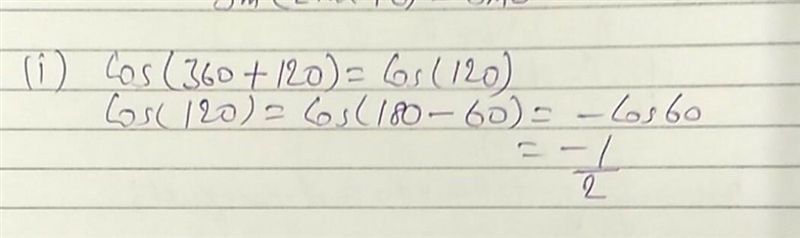 (i) Cos(360+120)=Cos(120)
Cos(120)=Cos(180-60)=-Cos60
=-1/2